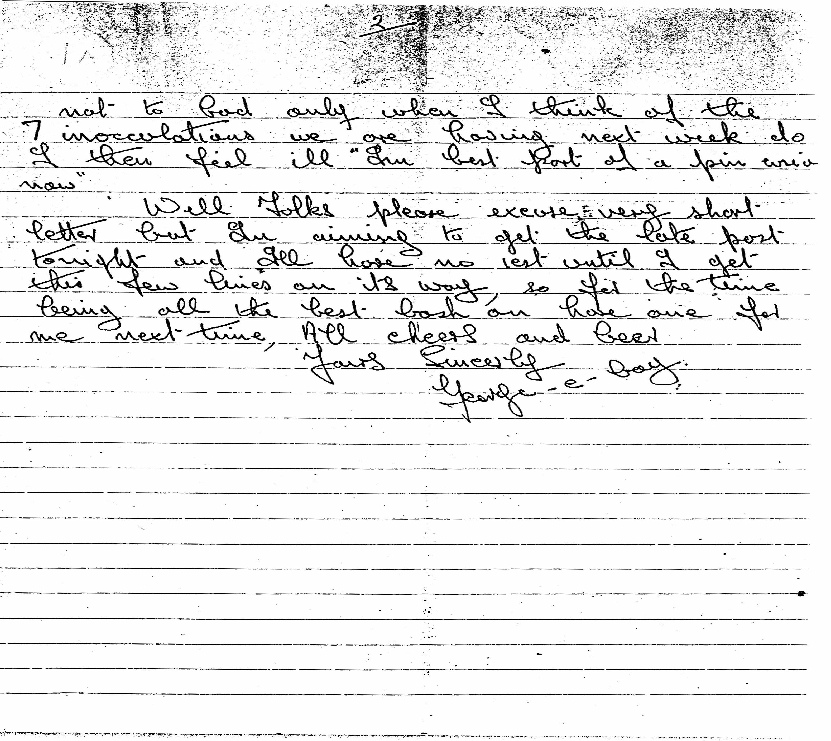 2
not to bad only when I think of the
7 inocculations we are having next week do
I then feel ill "Im best part of a pin
now"
Well Folks please excuse very short
letter but Im aiming to get the late post
tonight and Ill have no rest until I get
this few lines on its way, so for the time
being all the best bash on have one for
me next time, All cheers and beer
Yours Sincerly
George - e - boy.